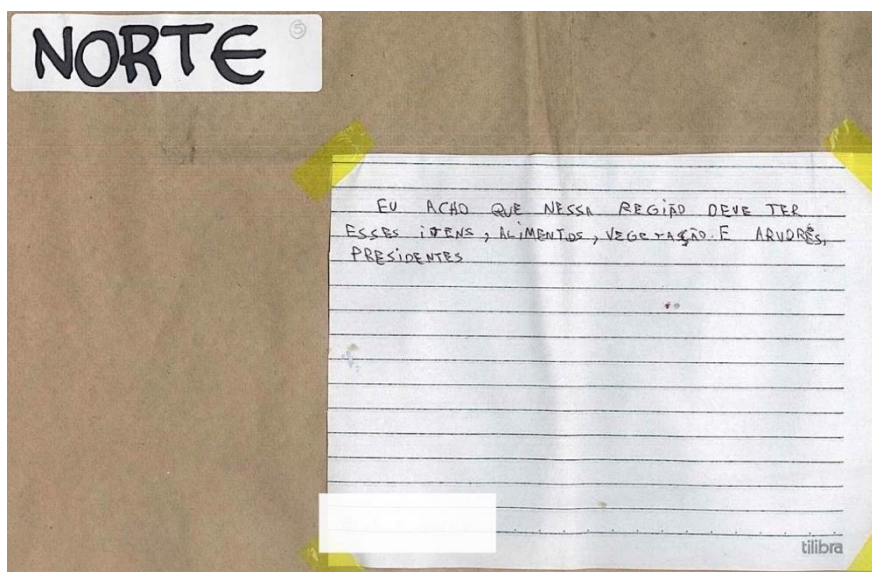 NORTE
5
EU ACHO QUE NESSA REGIÃO DEVE TER
ESSES ITENS, ALIMENTOS, VEGETAÇÃO E ARVORES,
PRESIDENTES
tilibra